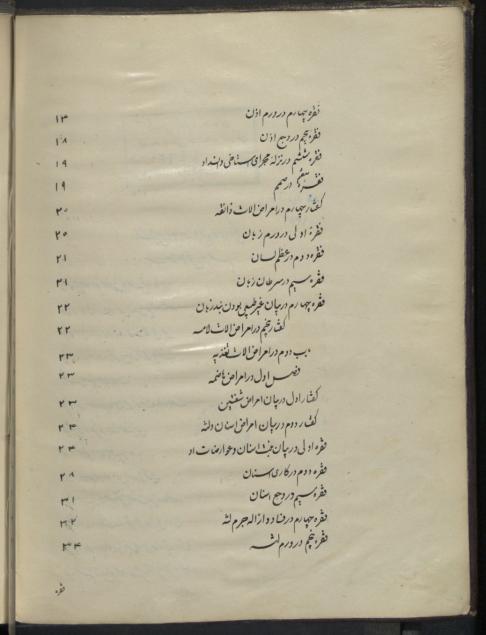 فقره چهارم در ورم اذن ۱۳
فقره پنجم در وجع اذن ۱۸
فقره ششم در نزله مجرای استاخی و انسداد ۱۹
فقره هفتم در صمم ۱۹
گفتار چهارم در امراض الات ذائقه ۲۰
فقره اولی در ورم زبان ۲۰
فقره دوم در عظم لسان ۲۱
فقره سیم در سرطان زبان ۲۱
فقره چهارم در بیان غیر طبیعی بودن بند زبان ۲۲
گفتار پنجم در امراض الات لامسه ۲۲
باب دوم در امراض الات تغذیه ۲۳
فصل اول در امراض هاضمه ۲۳
گفتار اول در بیان امراض شفتین ۲۳
گفتار دوم در بیان امراض اسنان و لثه ۲۴
فقره اولی در بیان اسنان و عوارضات او ۲۴
فقره دوم در کاری اسنان ۲۸
فقره سیم در وجع اسنان ۳۱
فقره چهارم در فساد و ازاله جرم لثه ۳۲
فقره پنجم در ورم لثه ۳۴
فقره